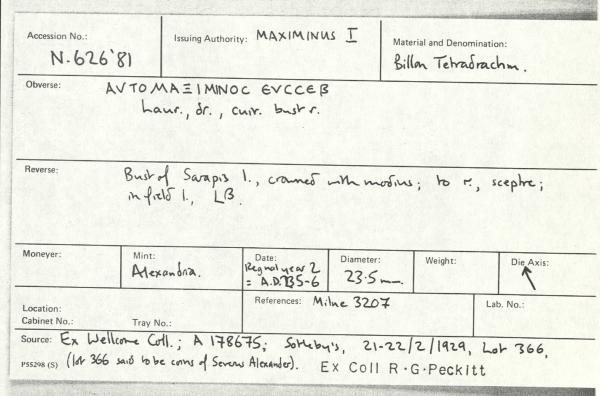 Accession No.: N.626'81
Issuing Authority: MAXIMINUS I
Material and Denomination: Billon Tetradrachm.
Obverse: ΑVΤΟΜΑΞΙΜΙΝΟC ΕVCCΕΒ
Laur., dr., cuir. bust r.
Reverse: Bust of Sarapis l., crowned with modius; to r., sceptre;
in field l., LB.
Moneyer:
Mint: Alexandria.
Date: Regnal year 2
= A.D. 235-6
Diameter: 23.5 mm.
Weight:
Die Axis: ↖
Location:
Cabinet No.: Tray No.:
References: Milne 3207
Lab. No.:
Source: Ex Wellcome Coll.; A 178675; Sotheby's, 21-22/2/1929, Lot 366,
P55298 (S) (lot 366 said to be coins of Severus Alexander). Ex Coll R.G.Peckitt